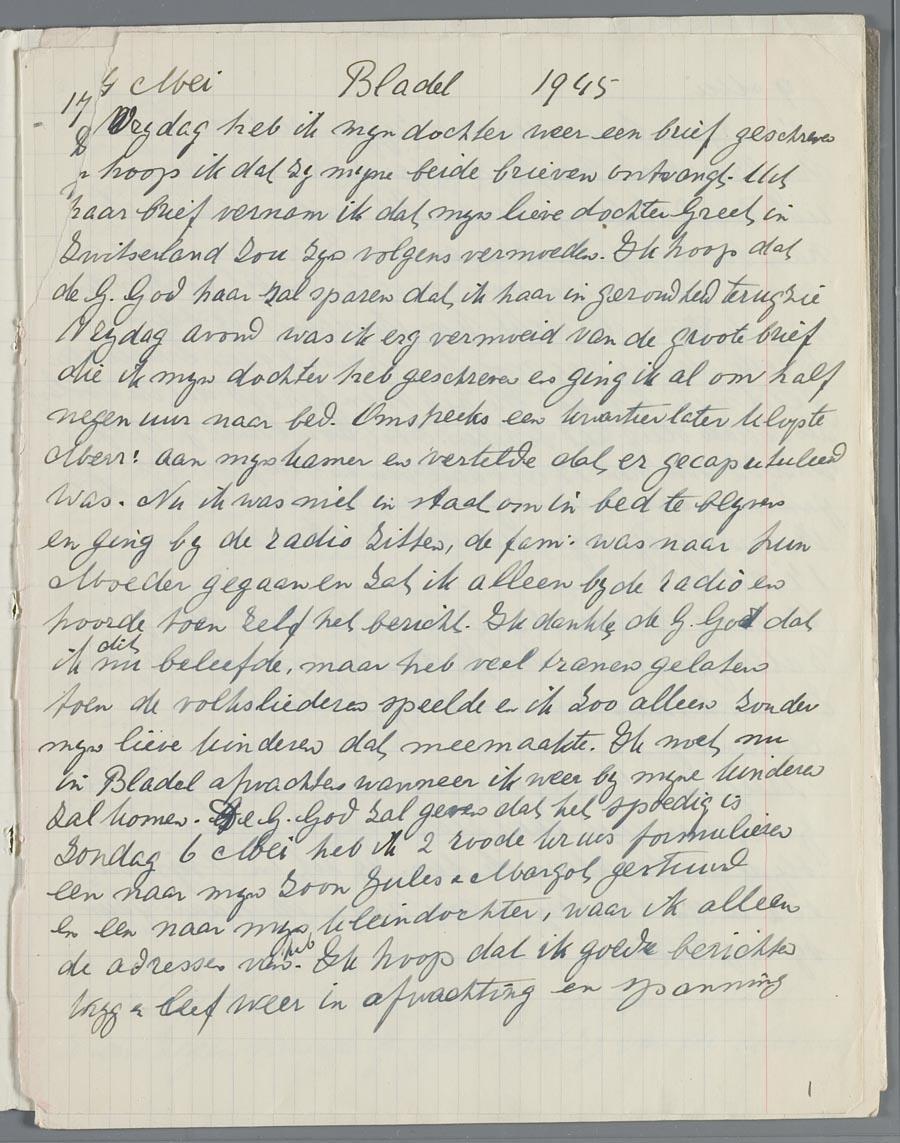 4 Mei Bladel 1945
Vrydag heb ik myn dochter weer een brief geschreven
hoop ik dat zy myne beide brieven ontvangt. Uit
haar brief vernam ik dat myn lieve dochter Greet in
Zwitserland zou zyn volgens vermoeden. Ik hoop dat
de G. God haar zal sparen dat ik haar in gezondheid terug zie
Vrydag avond was ik erg vermoeid van de groote brief
die ik myn dochter heb geschreven en ging ik al om half
negen uur naar bed. Omstreeks een kwartier later klopte
Mevr! aan myn kamer en vertelde dat er gecapituleerd
was. Nu ik was niet in staat om in bed te blyven
en ging by de radio zitten, de fam. was naar hun
Moeder gegaan en zat ik alleen by de radio en
hoorde toen zelf het bericht. Ik dankte de G. God dat
ik dit nu beleefde, maar heb veel tranen gelaten
toen de volksliederen speelde en ik zoo alleen zonder
myn lieve kinderen dat meemaakte. Ik moet nu
in Bladel afwachten wanneer ik weer by myne kinderen
zal komen. De G. God zal geven dat het spoedig is
Zondag 6 Mei heb ik 2 roode kruis formulieren
een naar myn zoon Jules en Margot gestuurd
en een naar myn kleindochter, waar ik alleen
de adressen van heb. Ik hoop dat ik goede berichten
kryg en leef weer in afwachting en spanning
1